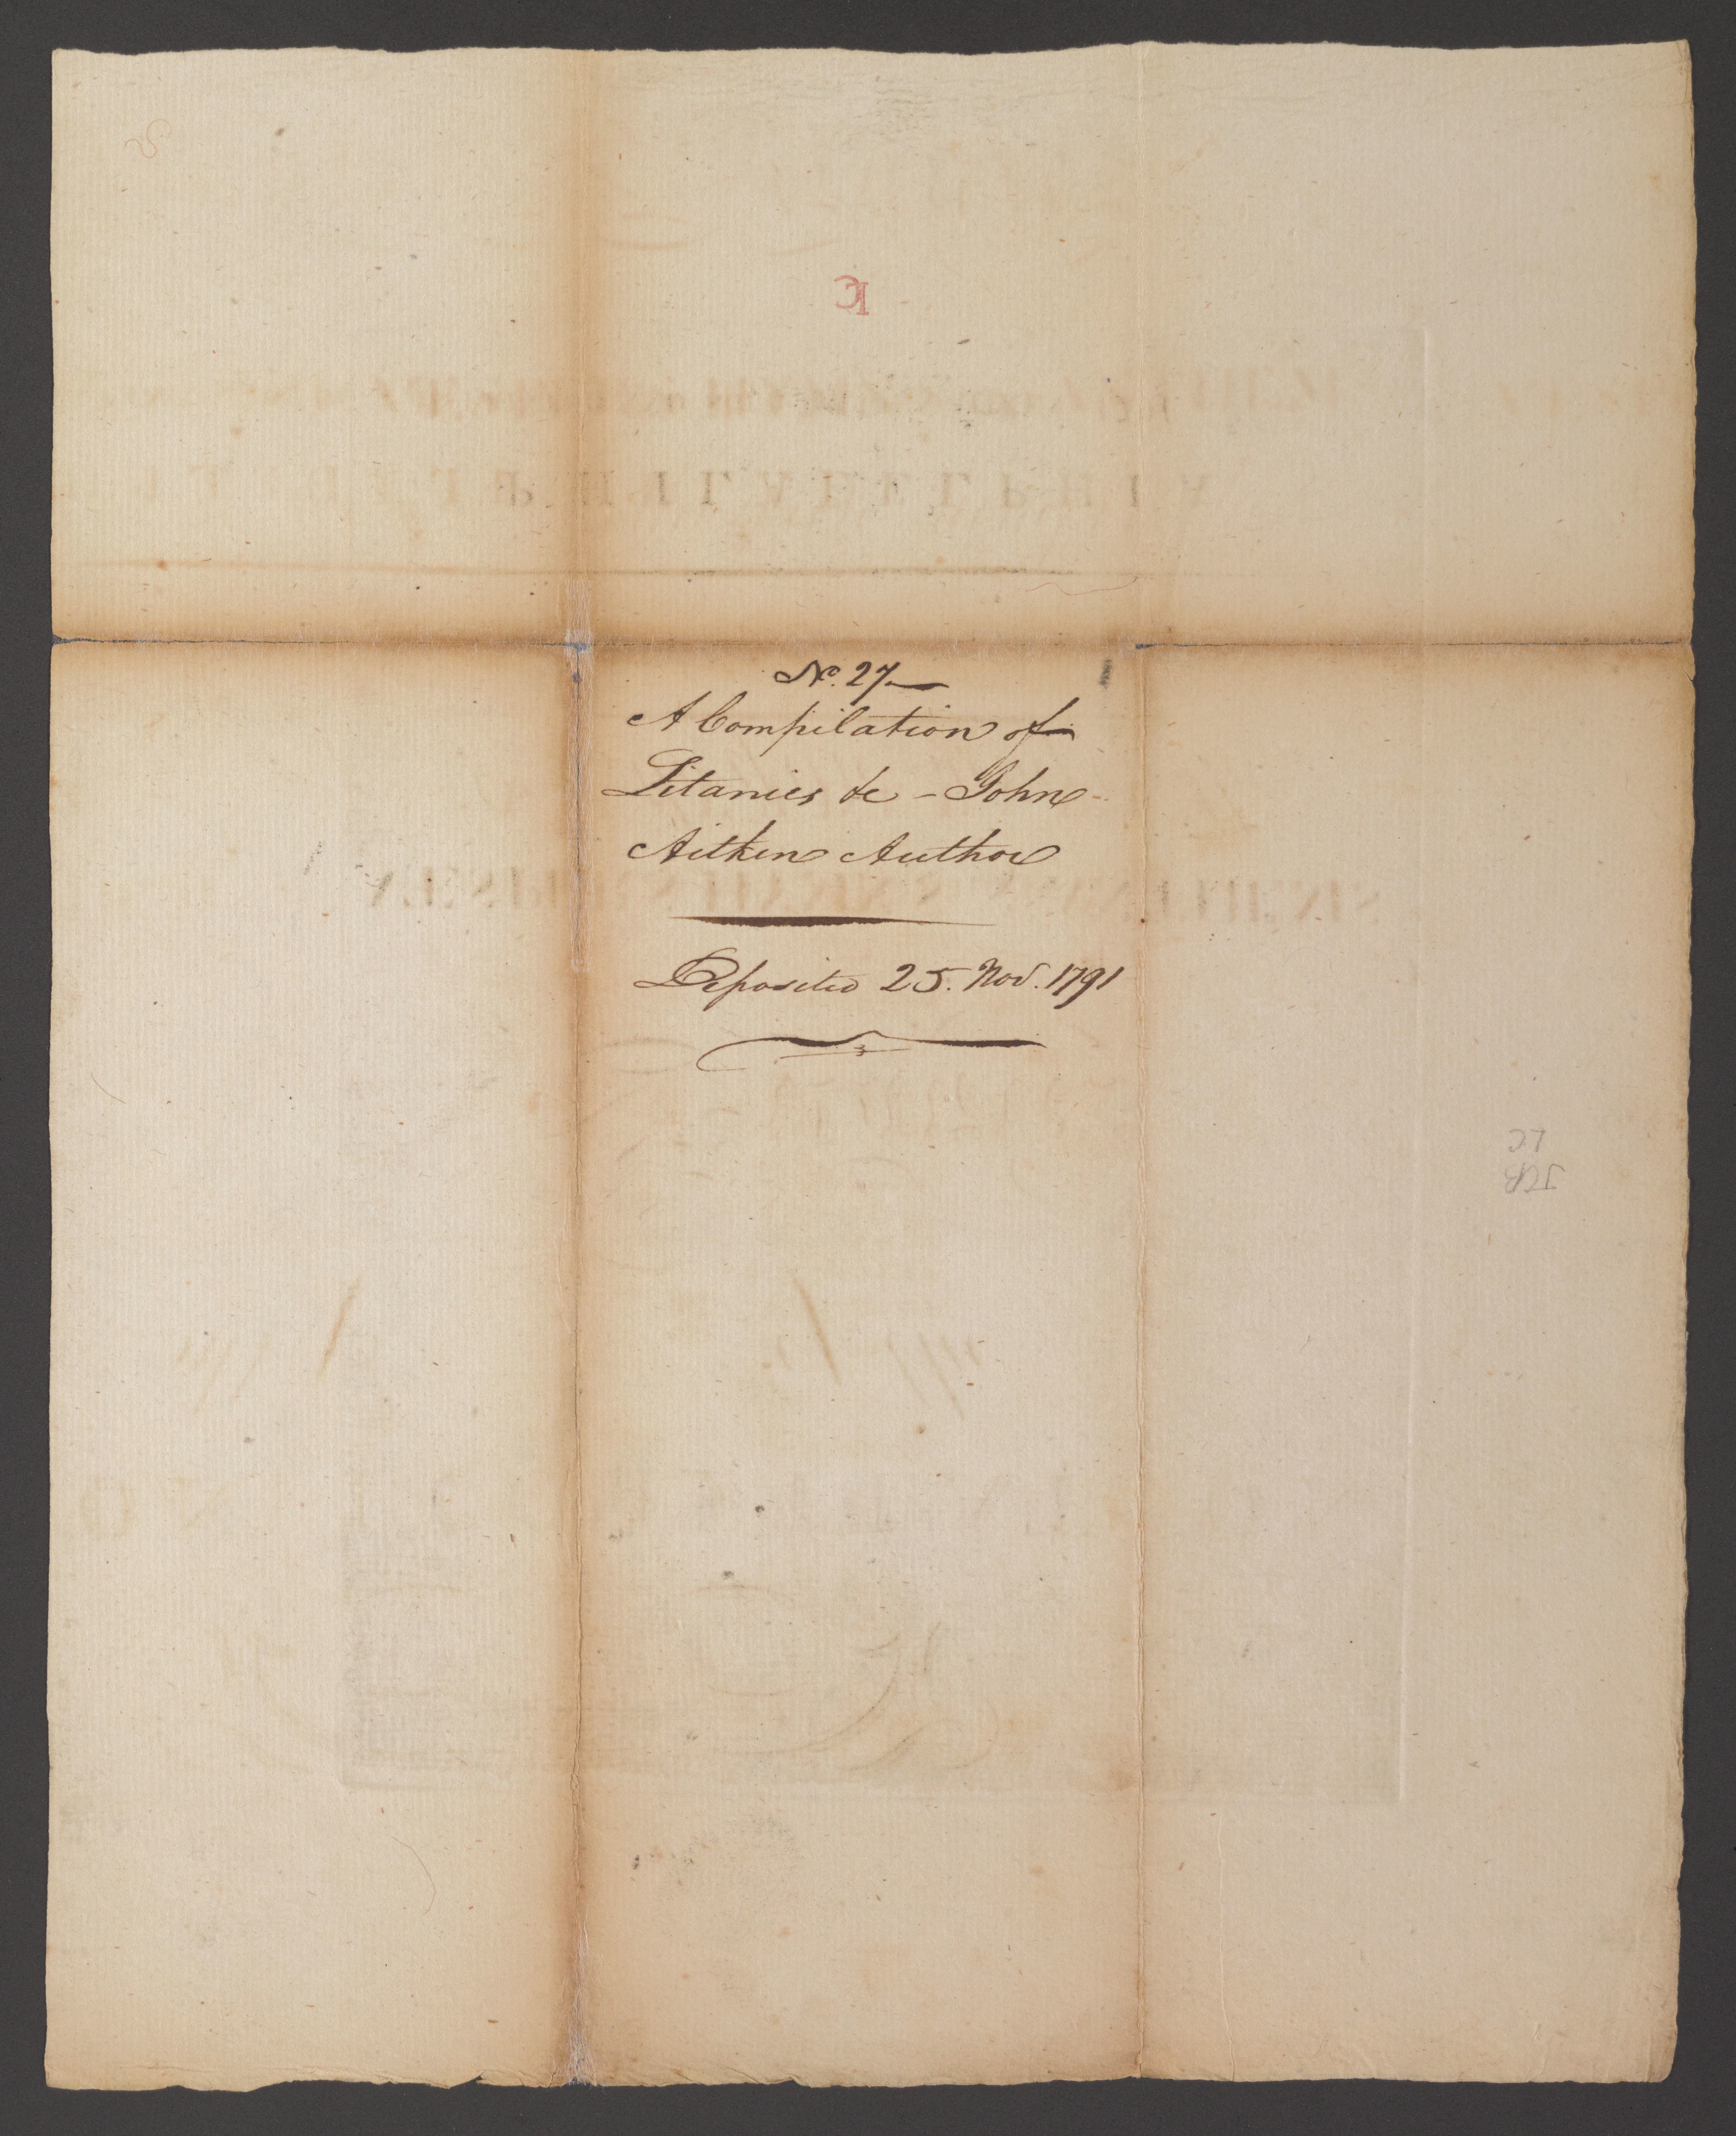 No. 27
A Compilation of
Litanies &c - John
Aitken Author
Deposited 25. Nov. 1791
LC
JCB